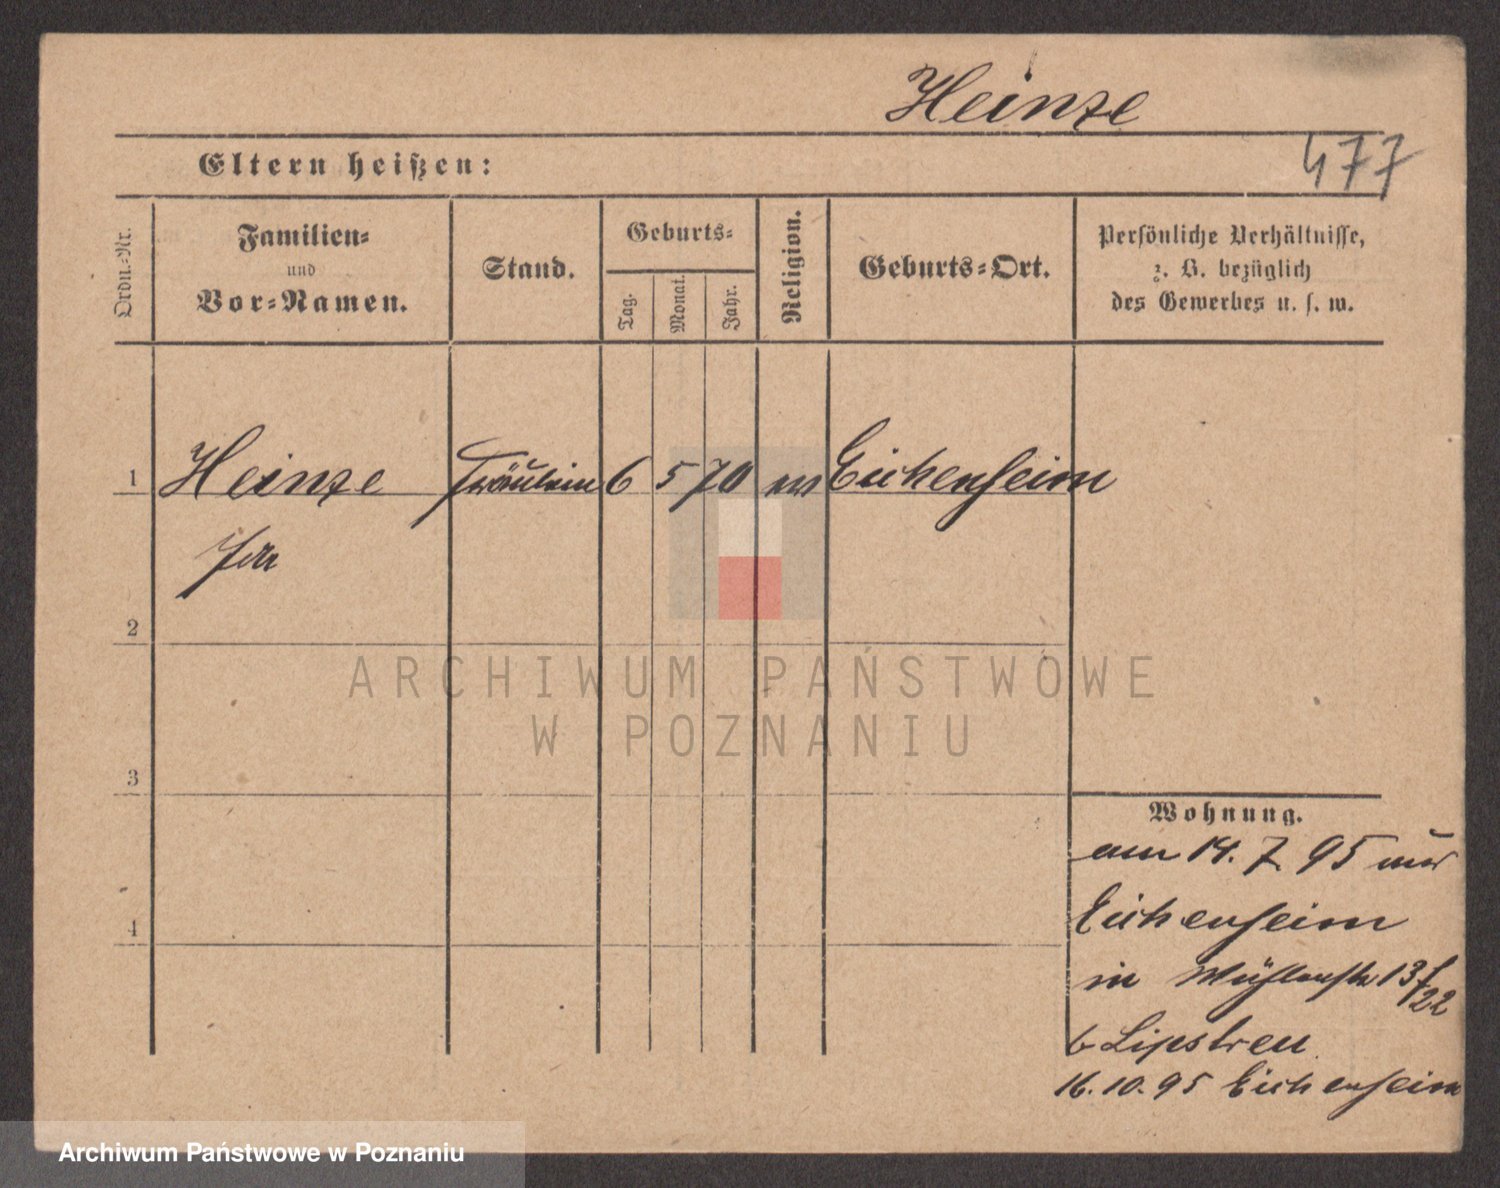 Heinze
477
Eltern heißen:
Ordn.-Nr.
Familien-
und
Vor-Namen.
Stand.
Geburts-
Tag.
Monat.
Jahr.
Religion.
Geburts-Ort.
Persönliche Verhältnisse,
z. B. bezüglich
des Gewerbes u. s. w.
1 Heinze Fräulein 6 5 70 ev Eichenheim
2
3
4
ARCHIWUM PAŃSTWOWE
W POZNANIU
Wohnung.
am 14. 7. 95 aus
Eichenheim
in Mühlenstr 13/22
b
16. 10. 95 Eichenheim
Archiwum Państwowe w Poznaniu